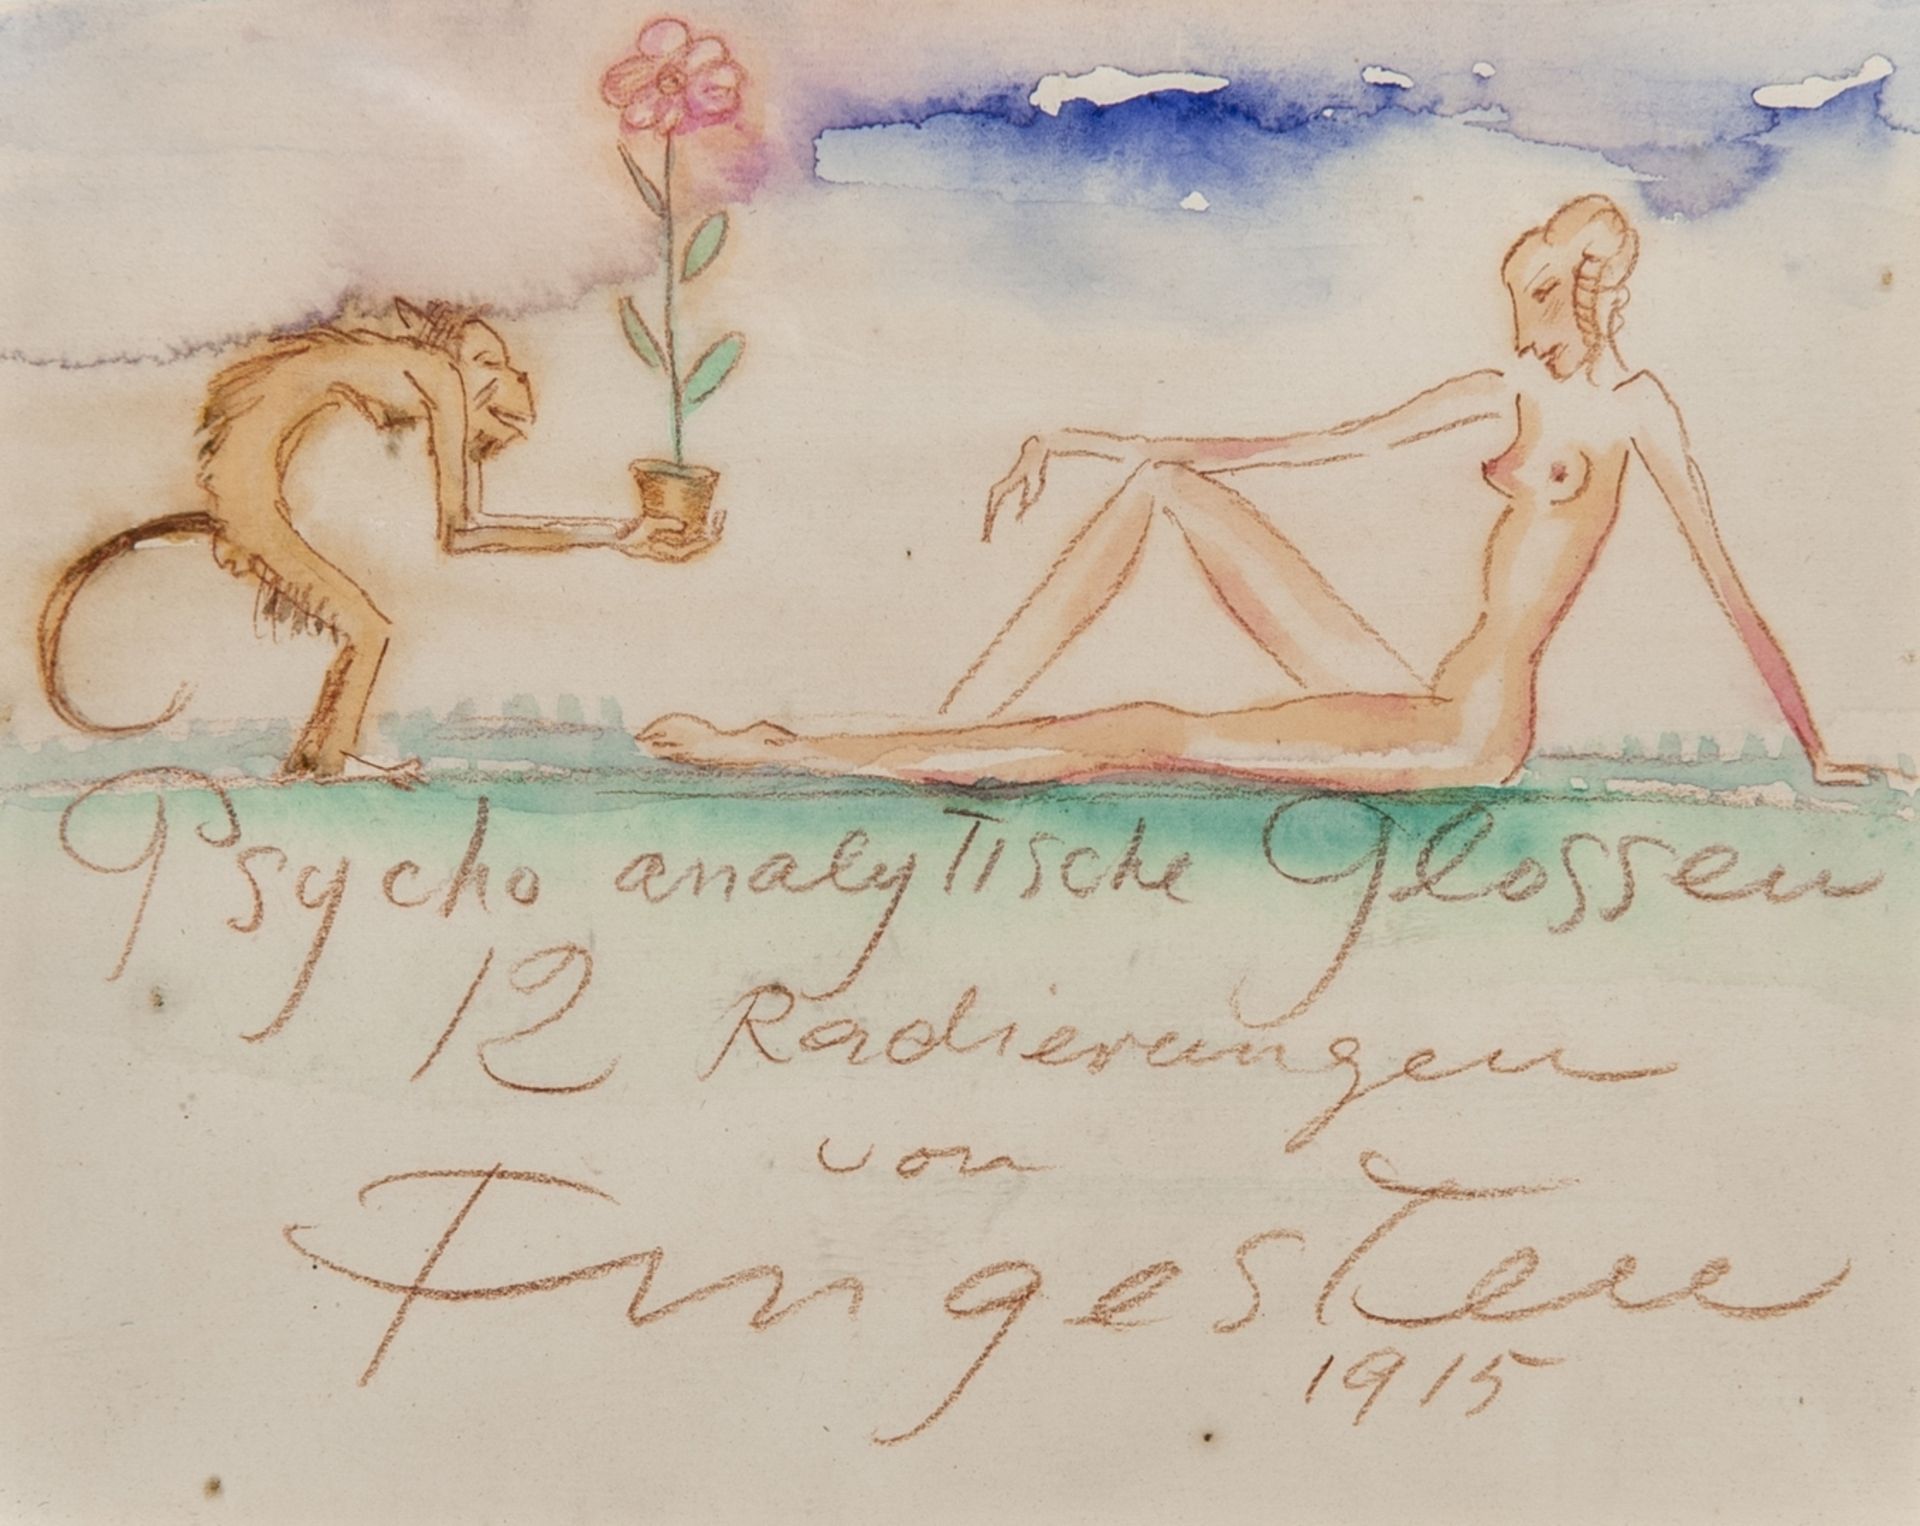 Psycho analytische Glossen
12 Radierungen
von
Fingesten
1915